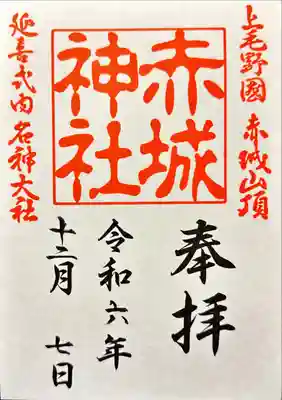 上毛野國 赤城山頂
赤城
神社
延喜式内名神大社
奉拝
令和六年
十二月 七日